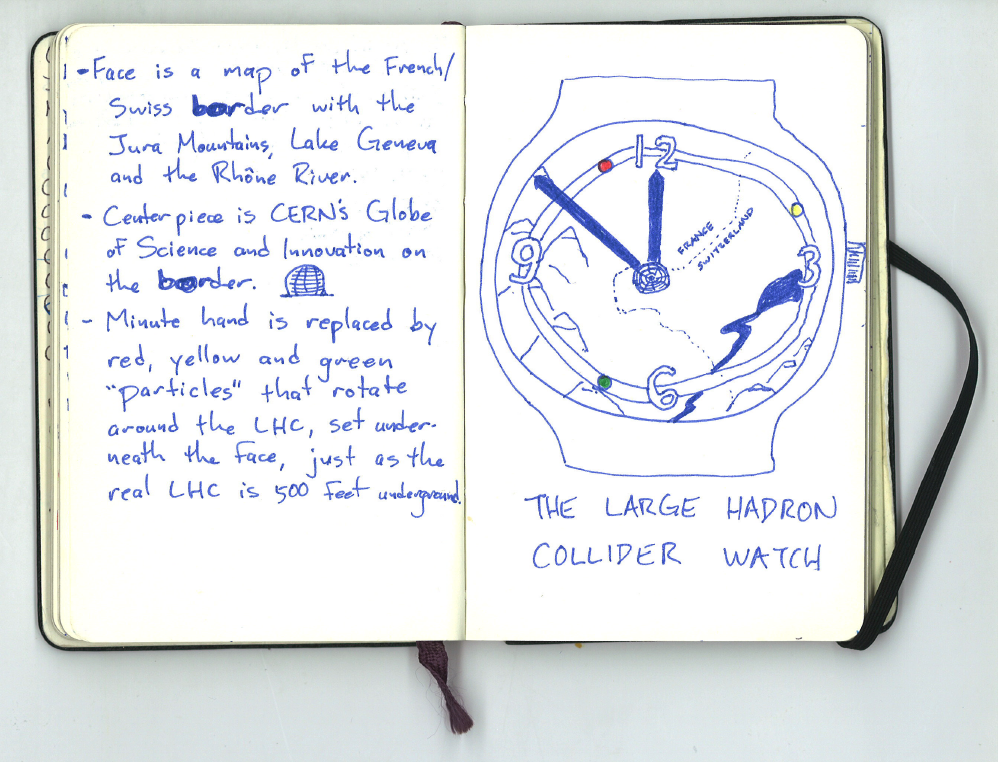 -Face is a map of the French/
Swiss border with the
Jura Mountains, Lake Geneva
and the Rhône River.
- Centerpiece is CERN's Globe
of Science and Innovation on
the border.
- Minute hand is replaced by
red, yellow and green
"particles" that rotate
around the LHC, set under-
neath the face, just as the
real LHC is 500 feet underground.
12
FRANCE
SWITZERLAND
9
3
6
THE LARGE HADRON
COLLIDER WATCH